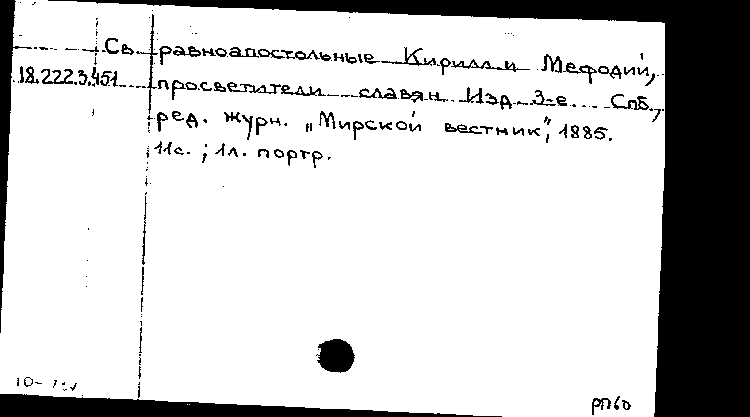 Св. равноапостольные Кирилл и Мефодий,
18.222.3.451 просветители славян. Изд. 3-е. Спб,
ред. журн. „Мирской вестник", 1885.
11с. ; 1л. портр.